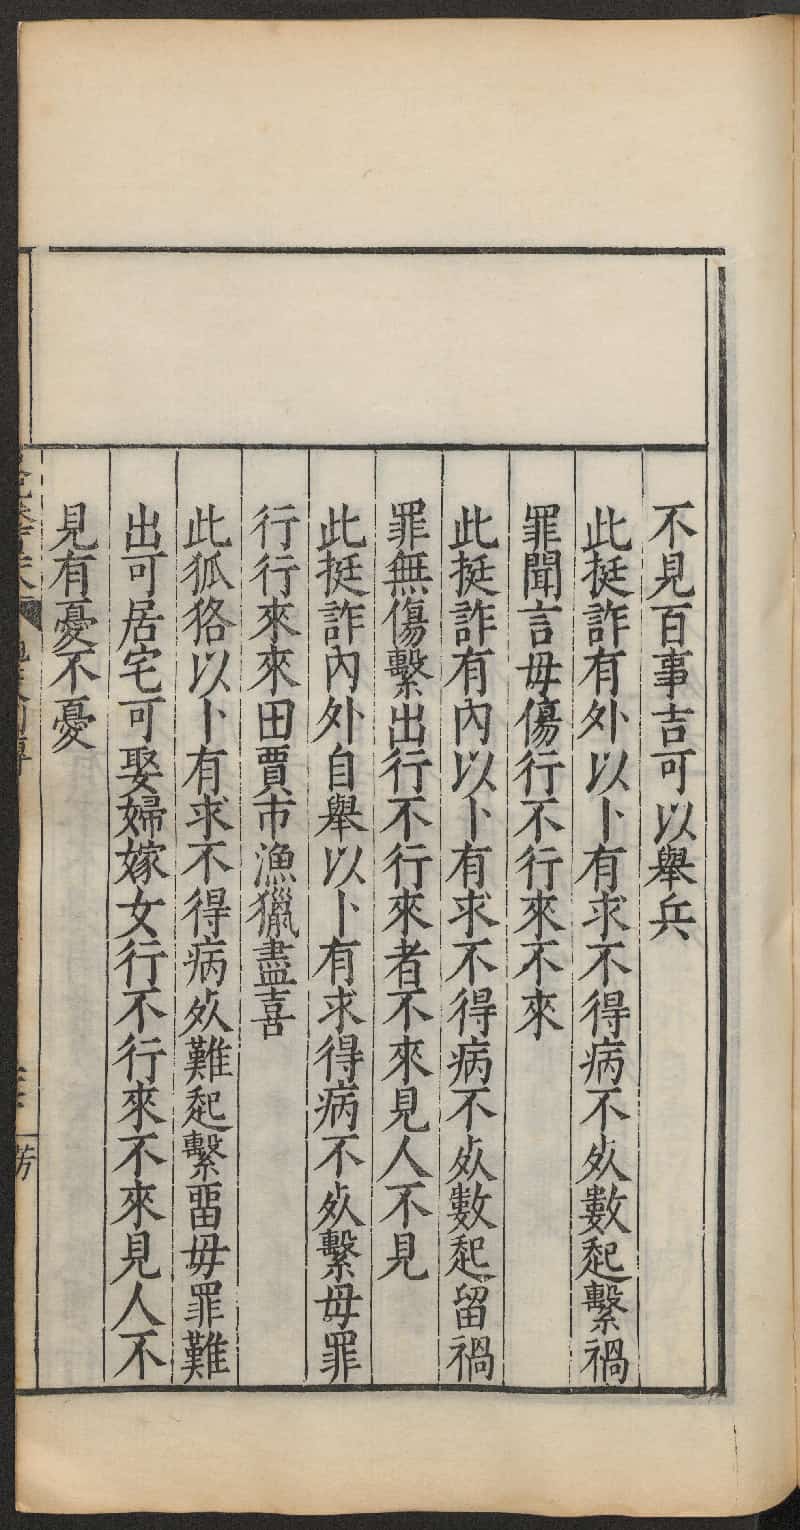 不見百事吉可以舉兵
此挺詐有外以卜有求不得病不㱙數起繫禍
罪聞言毋傷行不行來不來
此挺詐有內以卜有求不得病不㱙數起留禍
罪無傷繫出行不行來者不來見人不見
此挺詐內外自舉以卜有求得病不㱙繫毋罪
行行來來田賈市漁獵盡喜
此狐狢以卜有求不得病㱙難起繫畱毋罪難
出可居宅可娶婦嫁女行不行來不來見人不
見有憂不憂